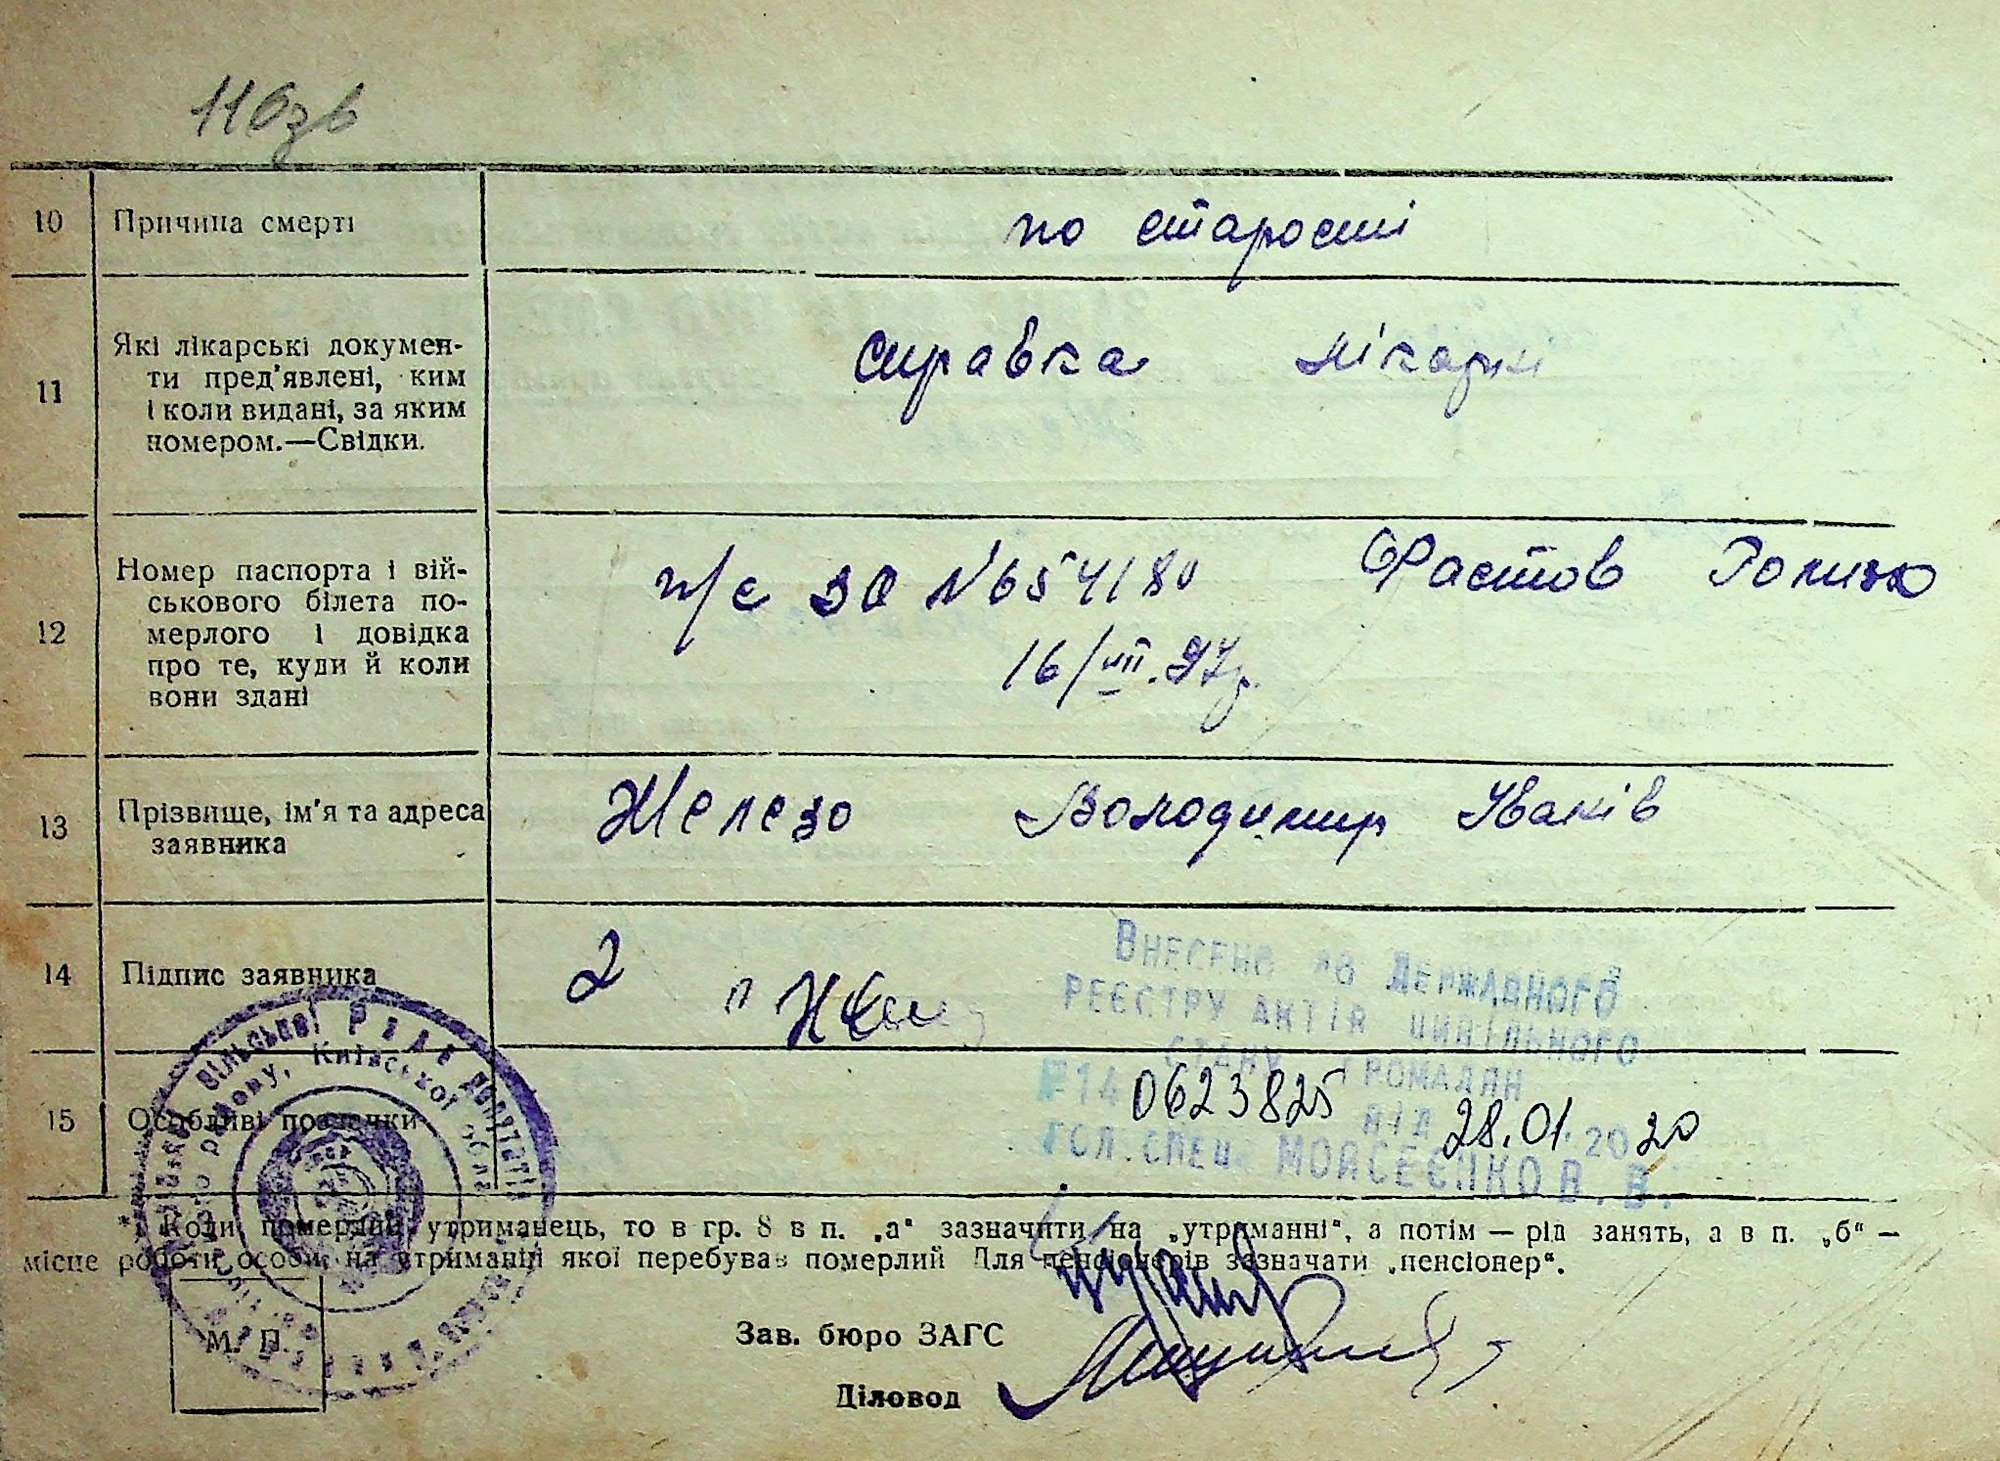 116зв
10 Причина смерті по старості
11 Які лікарські докумен-
ти пред'явлені, ким
і коли видані, за яким
номером.—Свідки.
справка лікарні
12 Номер паспорта і вій-
ськового білета по-
мерлого і довідка
про те, куди й коли
вони здані
п/с ЗО №654180 Фастов
16/VII.37р.
13 Прізвище, ім'я та адреса
заявника
Железо Володимир Іванів
14 Підпис заявника
Внесено до Державного
реєстру актів цивільного
стану громадян
15 Особливі позначки
№14 0623825
від 28.01.2020
Гол.спец. Моисеєнко В.В.
*) Коли померлий утриманець, то в гр. 8 в п. „а“ зазначити на „утриманні“, а потім — рід занять, а в п. „б“ —
місце роботи особи, на утриманні якої перебував померлий Для пенсіонерів зазначати „пенсіонер“.
М. П.
Зав. бюро ЗАГС
Діловод